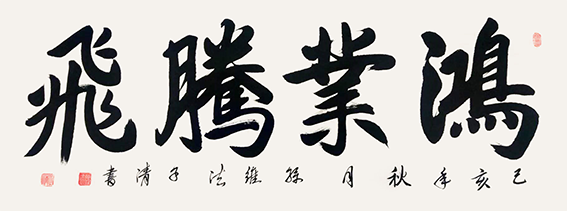 鴻業騰飛
己亥年秋月孫維法子清書